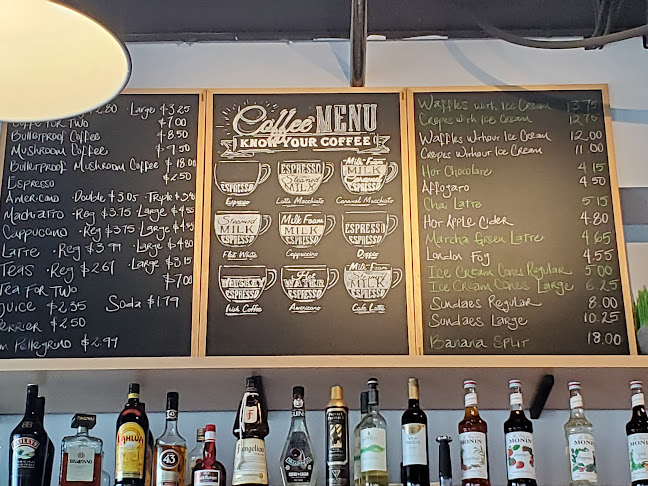 2.80 · Large $3.25
Coffee for Two $7.00
Bulletproof Coffee $8.50
Mushroom Coffee $7.50
Bulletproof Mushroom Coffee $18.00
Espresso $2.50
Americano · Double $3.05 · Triple
Macchiatto · Reg $3.75 · Large $4.55
Cappuccino · Reg $3.75 · Large $4.55
Latte · Reg $3.99 · Large $4.80
Teas · Reg $2.67 · Large $3.15
Tea for Two $7.00
Juice $2.35 Soda $1.79
Perrier $2.50
Pellegrino $2.99
Coffee MENU
KNOW YOUR COFFEE
ESPRESSO
Espresso
ESPRESSO
Steamed
MILK
Latte Macchiato
Milk Foam
MILK
Caramel
ESPRESSO
Caramel Macchiato
Steamed
MILK
ESPRESSO
Flat White
Milk Foam
MILK
ESPRESSO
Cappuccino
ESPRESSO
ESPRESSO
Doppio
WHISKEY
ESPRESSO
Irish Coffee
Hot
WATER
ESPRESSO
Americano
Milk Foam
Steamed
MILK
ESPRESSO
Cafe Latte
Waffles with Ice Cream 13.75
Crepes with Ice Cream 12.75
Waffles Without Ice Cream 12.00
Crepes Without Ice Cream 11.00
Hot Chocolate 4.15
Affogato 4.50
Chai Latte 5.15
Hot Apple Cider 4.80
Matcha Green Latte 4.65
London Fog 4.55
Ice Cream Cones Regular 5.00
Ice Cream Cones Large 6.25
Sundaes Regular 8.00
Sundaes Large 10.25
Banana Split 18.00
BAILEYS
DISARONNO
KAHLÚA
43
Frangelico
MONIN
MONIN
MONIN
MONIN